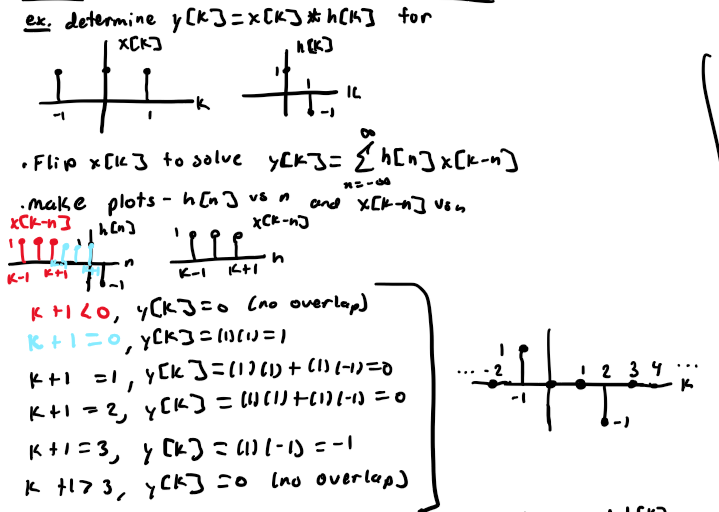 ex. determine y[k]=x[k]*h[k] for
x[k]
-1 1 k
h[k]
1 1 -1 k
• Flip x[k] to solve y[k]= ∞ Σ n=-∞ h[n]x[k-n]
• make plots - h[n] vs n and x[k-n] vs n
x[k-n] h[n] x[k-n]
1 1 n 1 n
k-1 k+1 k+1 -1 k-1 k+1
k+1<0, y[k]=0 (no overlap)
k+1=0, y[k]=(1)(1)=1
k+1 =1, y[k]=(1)(1)+(1)(-1)=0
k+1=2, y[k]=(1)(1)+(1)(-1)=0
k+1=3, y[k]=(1)(-1)=-1
k+1>3, y[k]=0 (no overlap)
1
... -2 -1 1 2 3 4 ... k
-1